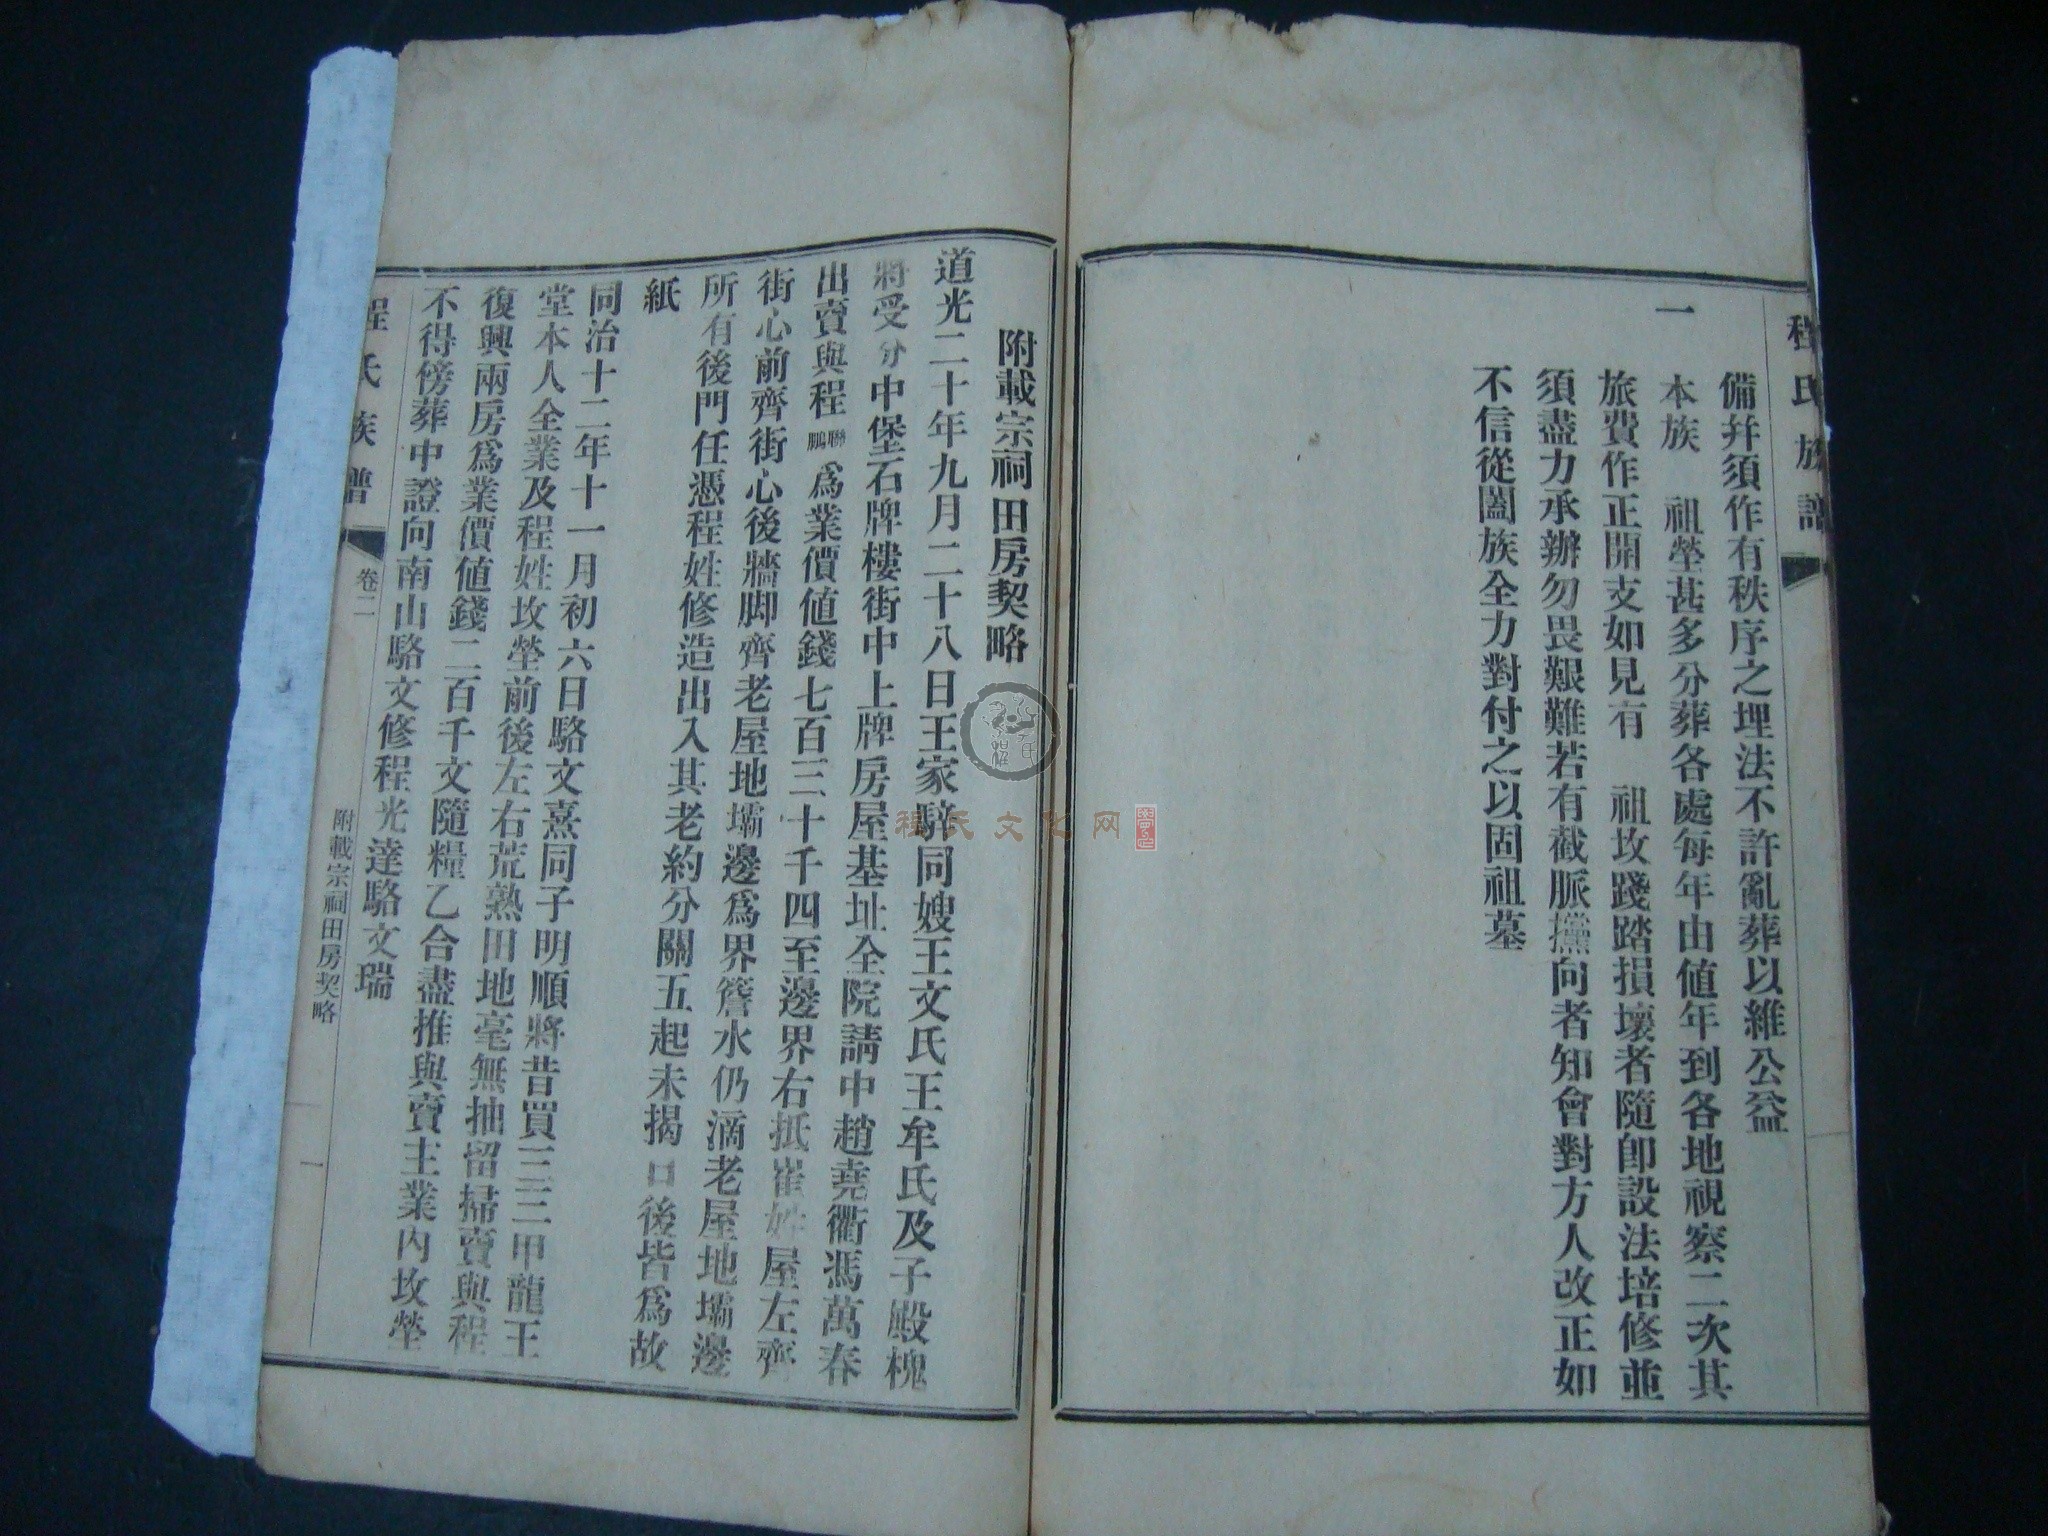 程氏族譜
備并須作有秩序之埋法不許亂葬以維公益
一
本族 祖塋甚多分葬各處每年由値年到各地視察二次其
旅費作正開支如見有 祖坟踐踏損壞者隨卽設法培修並
須盡力承辦勿畏艱難若有截脈攩向者知會對方人改正如
不信從闔族全力對付之以固祖墓
附載宗祠田房契略
道光二十年九月二十八日王家騂同嫂王文氏王牟氏及子殿槐
將受分中堡石牌樓街中上牌房屋基址全院請中趙堯衢馮萬春
出賣與程聯鵬爲業價値錢七百三十千四至邊界右抵崔姓屋左齊
街心前齊街心後牆脚齊老屋地壩邊爲界簷水仍滴老屋地壩邊
所有後門任憑程姓修造出入其老約分關五起未揭口後皆爲故
紙
同治十二年十一月初六日駱文熹同子明順將昔買三三甲龍王
堂本人全業及程姓坟塋前後左右荒熟田地毫無抽留掃賣與程
復興兩房爲業價値錢二百千文隨糧乙合盡推與賣主業內坟塋
不得傍葬中證向南山駱文修程光達駱文瑞
程氏族譜
卷二
附載宗祠田房契略
一
程氏文化网